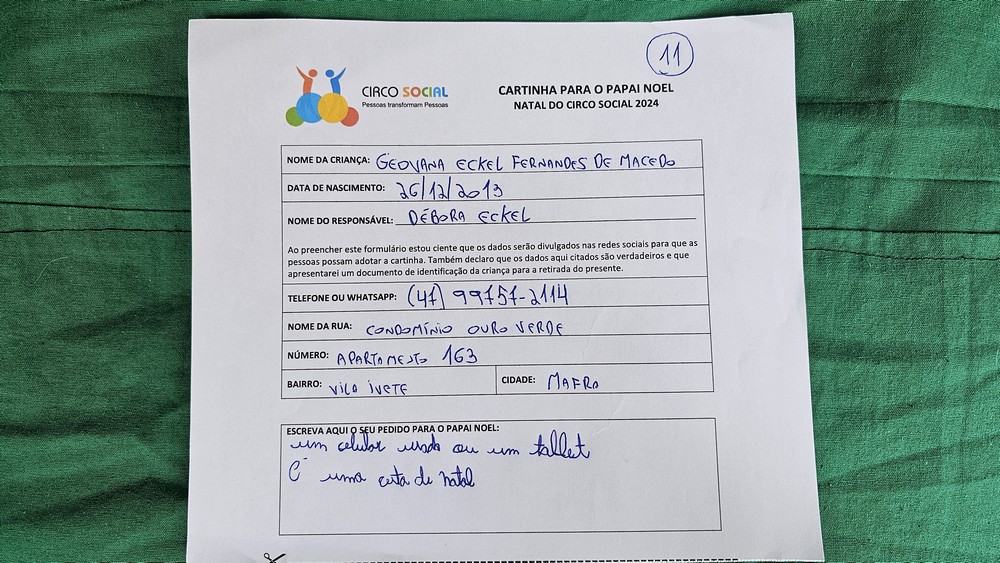 11
CIRCO SOCIAL
Pessoas transformam Pessoas
CARTINHA PARA O PAPAI NOEL
NATAL DO CIRCO SOCIAL 2024
NOME DA CRIANÇA: GEOVANA ECKEL FERNANDES DE MACEDO
DATA DE NASCIMENTO: 26/12/2013
NOME DO RESPONSÁVEL: DÉBORA ECKEL
Ao preencher este formulário estou ciente que os dados serão divulgados nas redes sociais para que as
pessoas possam adotar a cartinha. Também declaro que os dados aqui citados são verdadeiros e que
apresentarei um documento de identificação da criança para a retirada do presente.
TELEFONE OU WHATSAPP: (47) 99757-2114
NOME DA RUA: CONDOMÍNIO OURO VERDE
NÚMERO: APARTAMESTO 163
BAIRRO: VILA IVETE CIDADE: MAFRA
ESCREVA AQUI O SEU PEDIDO PARA O PAPAI NOEL:
um celular usado ou um tablet
E uma cesta de natal